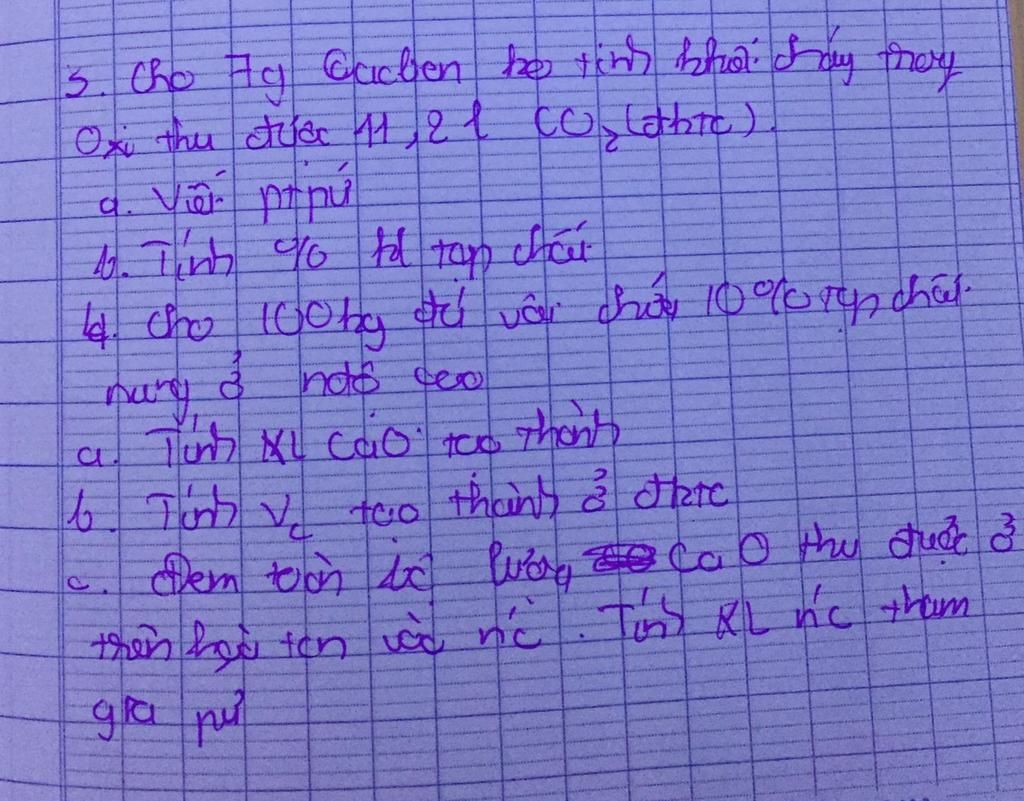 3. Cho 7g Cacbon ko tinh khiết cháy trong
Oxi thu được 11,2 l CO₂ (đktc).
a. Viết ptpứ
b. Tính % tạp chất
4. Cho 100kg đá vôi chứa 10% tạp chất.
nung ở nđộ cao
a. Tính KL CaO tạo thành
b. Tính V tạo thành ở đktc
c. Đem toàn bộ lượng CaO thu được ở
trên hoà tan vào nc. Tính KL nc tham
gia pứ